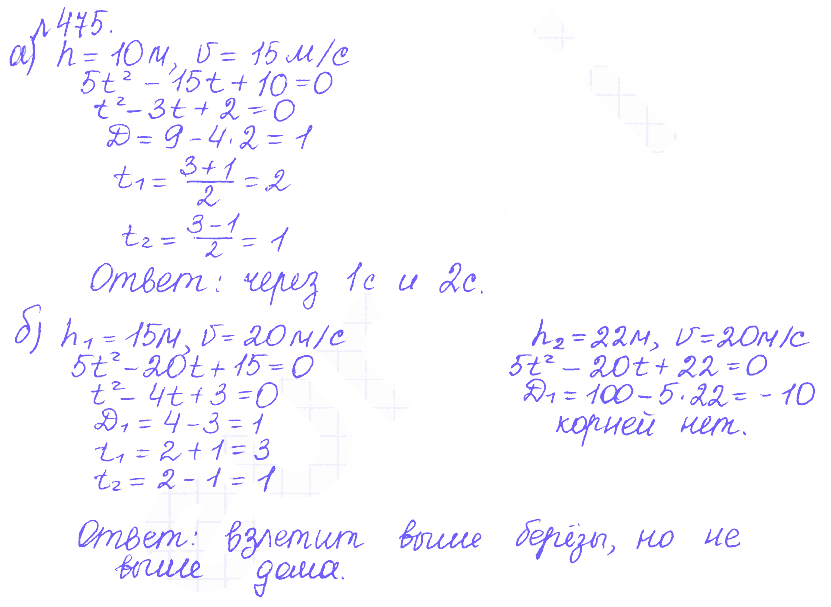 №475.
а) h = 10м, v = 15 м/с
5t² - 15t + 10 = 0
t² - 3t + 2 = 0
D = 9 - 4·2 = 1
t₁ = (3+1)/2 = 2
t₂ = (3-1)/2 = 1
Ответ: через 1с и 2с.
б) h₁ = 15м, v = 20м/с
5t² - 20t + 15 = 0
t² - 4t + 3 = 0
D₁ = 4 - 3 = 1
t₁ = 2 + 1 = 3
t₂ = 2 - 1 = 1
h₂ = 22м, v = 20м/с
5t² - 20t + 22 = 0
D₁ = 100 - 5·22 = -10
корней нет.
Ответ: взлетит выше берёзы, но не
выше дома.